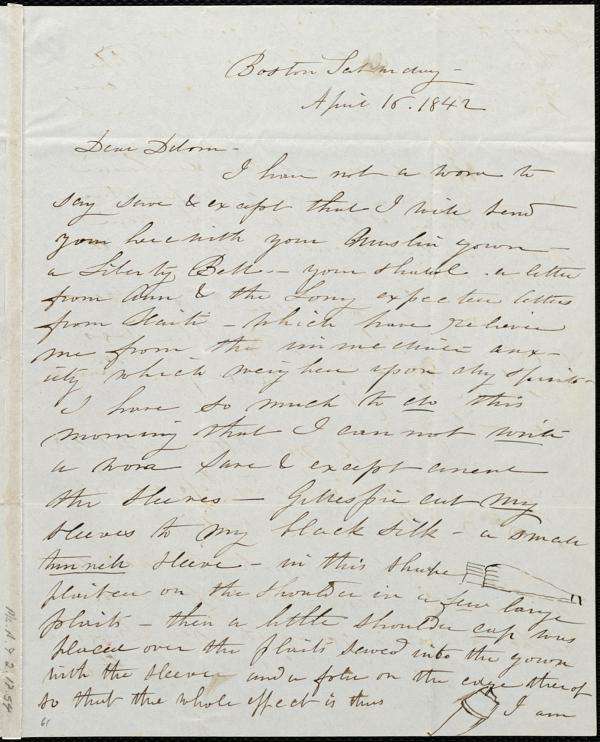 Boston Saturday -
April 16. 1842
Dear Debora -
I have not a word to
say save & except that I will send
you herewith your Muslin gown -
a Liberty Bell - your shawl. a letter
from Ann & the long expected letters
from Haiti - which have relieved
me from the immediate anx-
iety which weighed upon my spirits -
I have so much to do this
morning that I can not write
a word save & except anent
the sleeves - Gillespie cut my
sleeves to my black silk - a small
sleeve - in this shape
plaited on the shoulder in a few large
plaits - then a little shoulder cap was
placed over the plaits sewed into the gown
with the sleeve and a fold on the edge thereof
so that the whole effect is thus I am
61
Ms. A. 9. 2. 17. 54